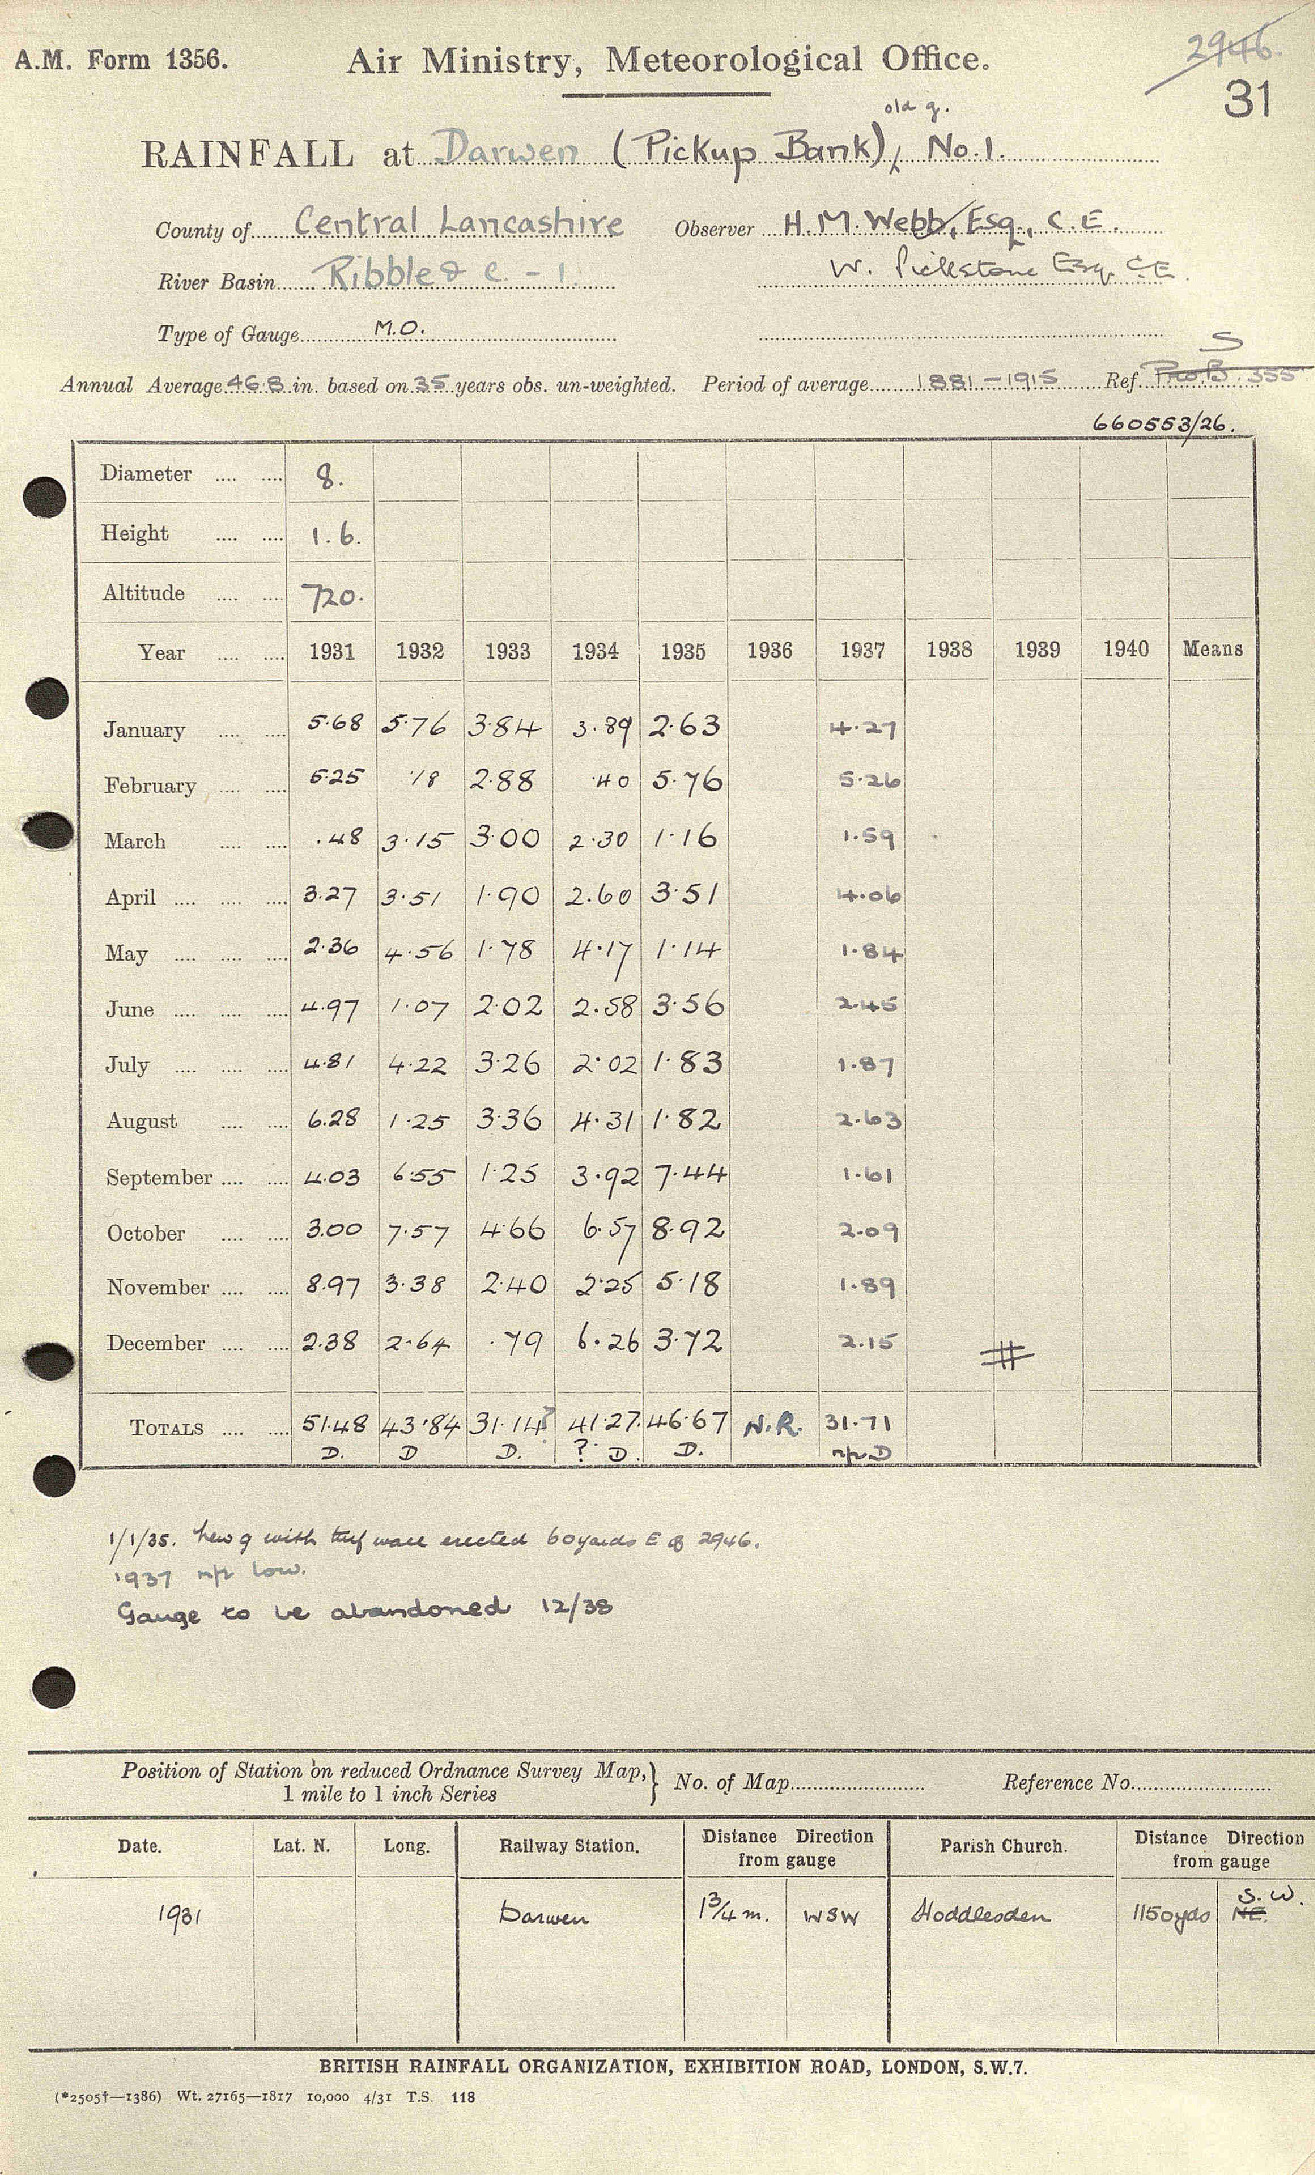 2946.
A.M. Form 1356. Air Ministry, Meteorological Office.
31
old g.
RAINFALL at Darwen (Pickup Bank), No.1.
County of Central Lancashire Observer H.M. Webb, Esq., C.E.
River Basin Ribble & c. - 1 W. Pickstone Esq. C.E.
Type of Gauge M.O.
S
Annual Average 46.8 in. based on 35 years obs. un-weighted. Period of average 1881-1915 Ref. 355
660553/26.
Diameter 8.
Height 1.6.
Altitude 720.
Year 1931 1932 1933 1934 1935 1936 1937 1938 1939 1940 Means
January 5.68 5.76 3.84 3.89 2.63 4.27
February 5.25 .18 2.88 .40 5.76 5.26
March .48 3.15 3.00 2.30 1.16 1.59
April 3.27 3.51 1.90 2.60 3.51 4.06
May 2.36 4.56 1.78 4.17 1.14 1.84
June 4.97 1.07 2.02 2.58 3.56 2.45
July 4.81 4.22 3.26 2.02 1.83 1.87
August 6.28 1.25 3.36 4.31 1.82 2.63
September 4.03 6.55 1.25 3.92 7.44 1.61
October 3.00 7.57 4.66 6.57 8.92 2.09
November 8.97 3.38 2.40 2.25 5.18 1.89
December 2.38 2.64 .79 6.26 3.72 2.15
TOTALS 51.48 43.84 31.14? 41.27 46.67 N.R. 31.71
D. D D. ? D. D. n/r D
1/1/35. New g with turf wall erected 60 yards E of 2946.
1937 n/r low.
Gauge to be abandoned 12/38
Position of Station on reduced Ordnance Survey Map, } No. of Map Reference No.
1 mile to 1 inch Series
Date. Lat. N. Long. Railway Station. Distance from gauge Direction Parish Church. Distance from gauge Direction
S.W.
1931 Darwen 1 3/4 m. WSW Hoddlesden 1150yds NE.
BRITISH RAINFALL ORGANIZATION, EXHIBITION ROAD, LONDON, S.W.7.
(*2505†—1386) Wt. 27165—1817 10,000 4/31 T.S. 118